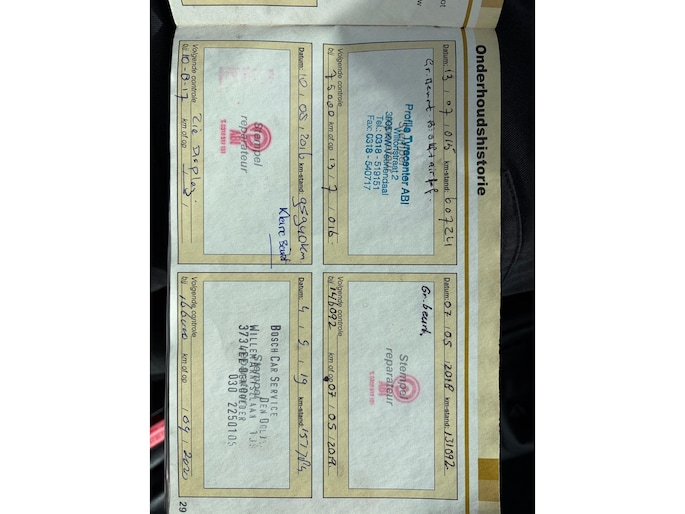 Onderhoudshistorie
Datum: 13 / 07 / 015 km-stand: 60724
Profile Tyrecenter ABI
Wiltonstraat 2
3905 KW Veenendaal
Tel.: 0318 - 519151
Fax: 0318 - 540717
Volgende controle
bij 75000 km of op 13 / 7 / 016
Datum: 07 / 05 / 2018 km-stand: 131092
Gr. beurt
Stempel
reparateur
ABI
Volgende controle
bij 146092 km of op 07 / 05 / 2019
Datum: 10 / 08 / 2016 km-stand: 95940km
Kleine Beurt
Stempel
reparateur
ABI
Volgende controle
bij 10-8-17 km of op
Zie Display
Datum: 4 / 9 / 19 km-stand:
BOSCH CAR SERVICE
DEN DOLDER
WILLEM ARNTSZLAAN
3734EE DEN DOLDER
030 2250105
Volgende controle
bij km of op / 09 / 2020
29